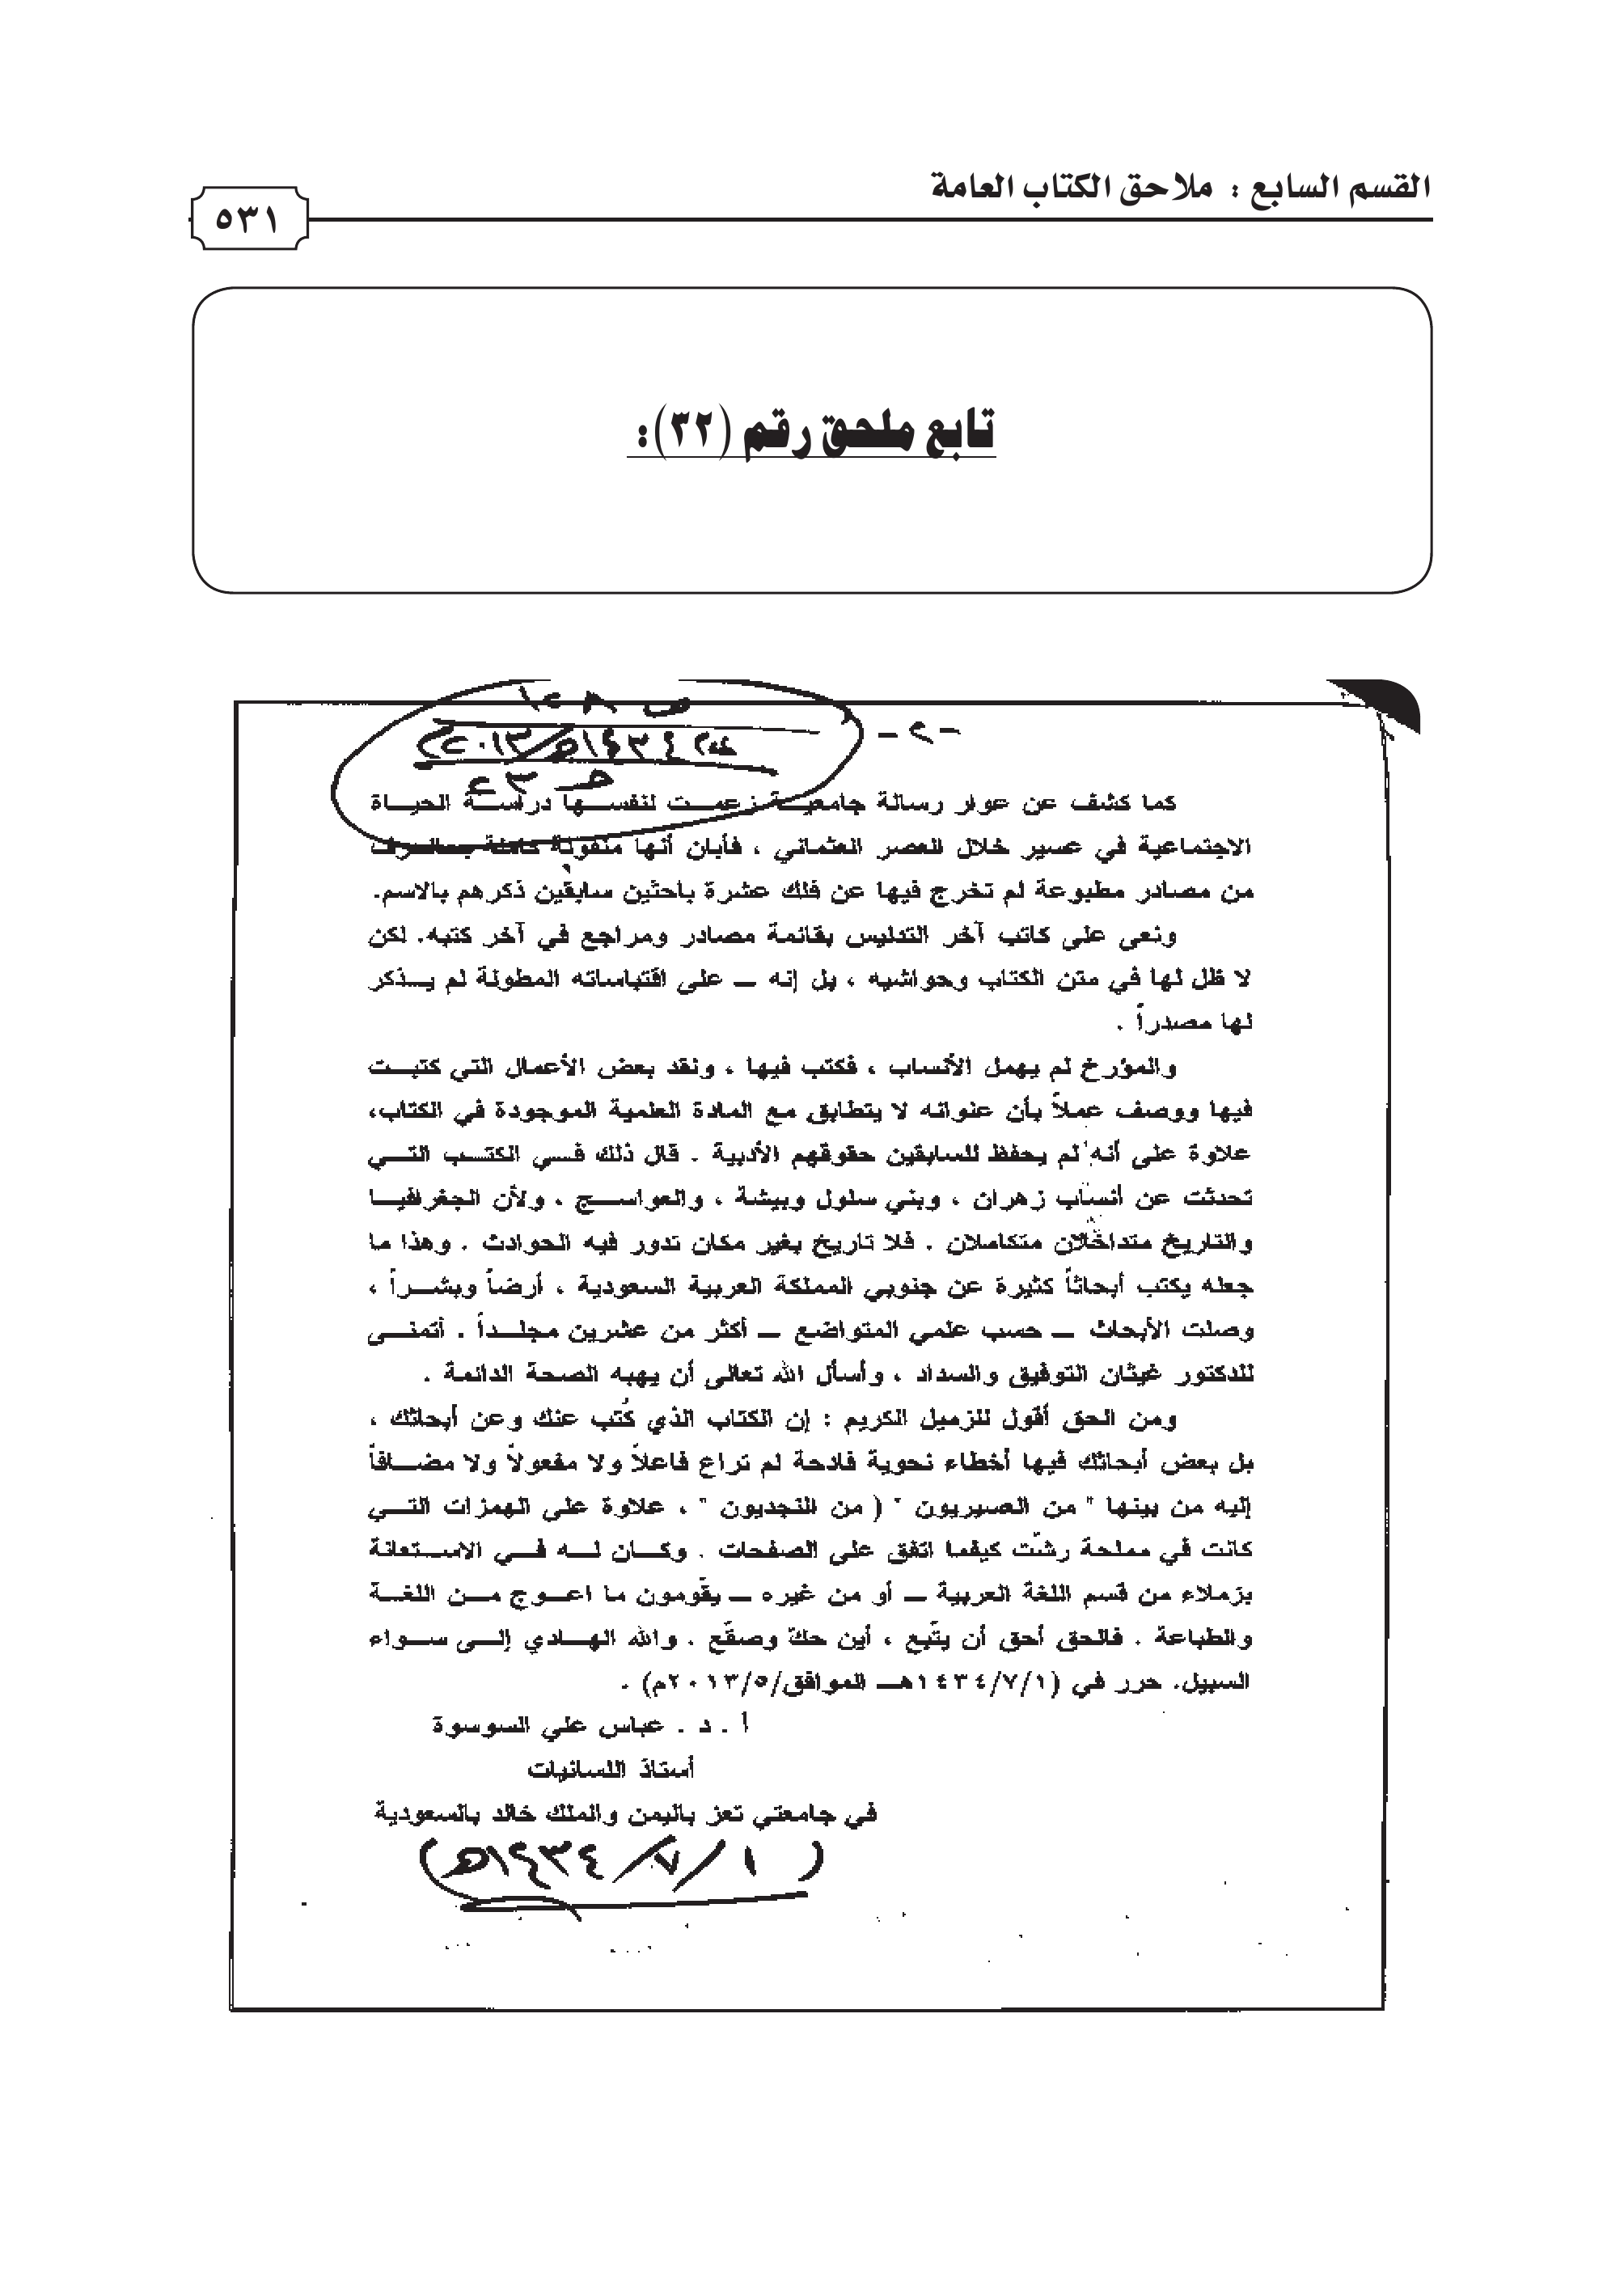 القسم السابع : ملاحق الكتاب العامة
٥٣١
تابع ملحق رقم (٣٢):
-٢-
١٤٣٤هـ/٢٠١٣م
كما كشف عن عوار رسالة جامعيـــة زعمـــت لنفســـها دراســـة الحيـــاة
الاجتماعية في عسير خلال العصر العثماني ، فأبان أنها منقولة كاملة بـــالحرف
من مصادر مطبوعة لم تخرج فيها عن فلك عشرة باحثين سابقين ذكرهم بالاسم.
ونعى على كاتب آخر التدليس بقائمة مصادر ومراجع في آخر كتبه. لكن
لا ظل لها في متن الكتاب وحواشيه ، بل إنه ــ على اقتباساته المطولة لم يـــذكر
لها مصدراً .
والمؤرخ لم يهمل الأنساب ، فكتب فيها ، ونقد بعض الأعمال التي كتبـــت
فيها ووصف عملاً بأن عنوانه لا يتطابق مع المادة العلمية الموجودة في الكتاب،
علاوة على أنه لم يحفظ للسابقين حقوقهم الأدبية . قال ذلك فـــي الكتـــب التـــي
تحدثت عن أنساب زهران ، وبني سلول وبيشة ، والعواســـج ، ولأن الجغرافيـــا
والتاريخ متداخلان متكاملان . فلا تاريخ بغير مكان تدور فيه الحوادث . وهذا ما
جعله يكتب أبحاثاً كثيرة عن جنوبي المملكة العربية السعودية ، أرضاً وبشـــراً ،
وصلت الأبحاث ــ حسب علمي المتواضع ــ أكثر من عشرين مجلـــداً . أتمنـــى
للدكتور غيثان التوفيق والسداد ، وأسأل الله تعالى أن يهبه الصحة الدائمة .
ومن الحق أقول للزميل الكريم : إن الكتاب الذي كُتب عنك وعن أبحاثك ،
بل بعض أبحاثك فيها أخطاء نحوية فادحة لم تراع فاعلاً ولا مفعولاً ولا مضـــافاً
إليه من بينها " من العسيريون " ( من النجديون " ، علاوة على الهمزات التـــي
كانت في مملحة رشّت كيفما اتفق على الصفحات . وكـــان لـــه فـــي الاســـتعانة
بزملاء من قسم اللغة العربية ــ أو من غيره ــ يقّومون ما اعـــوج مـــن اللغـــة
والطباعة . فالحق أحق أن يتّبع ، أين حكّ وصقّع . والله الهـــادي إلـــى ســـواء
السبيل. حرر في (١٤٣٤/٧/١هـــ الموافق/٢٠١٣/٥م) .
أ . د . عباس علي السوسوة
أستاذ اللسانيات
في جامعتي تعز باليمن والملك خالد بالسعودية
(١/٧/١٤٣٤هـ)